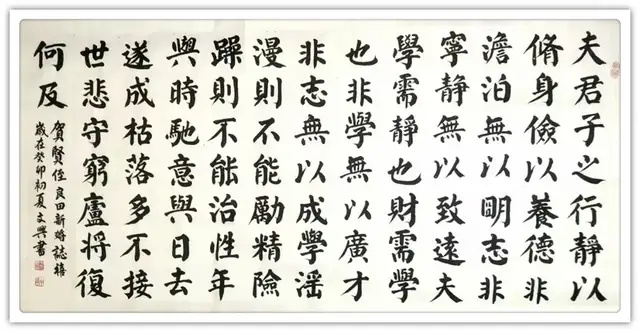 夫君子之行静以
脩身儉以養德非
澹泊無以明志非
寧静無以致遠夫
學需静也財需學
也非學無以廣才
非志無以成學滛
漫則不能勵精險
躁則不能治性年
與時馳意與日去
遂成枯落多不接
世悲守窮廬將復
何及
賀賢侄良田新婚誌禧
歲在癸卯初夏文興書